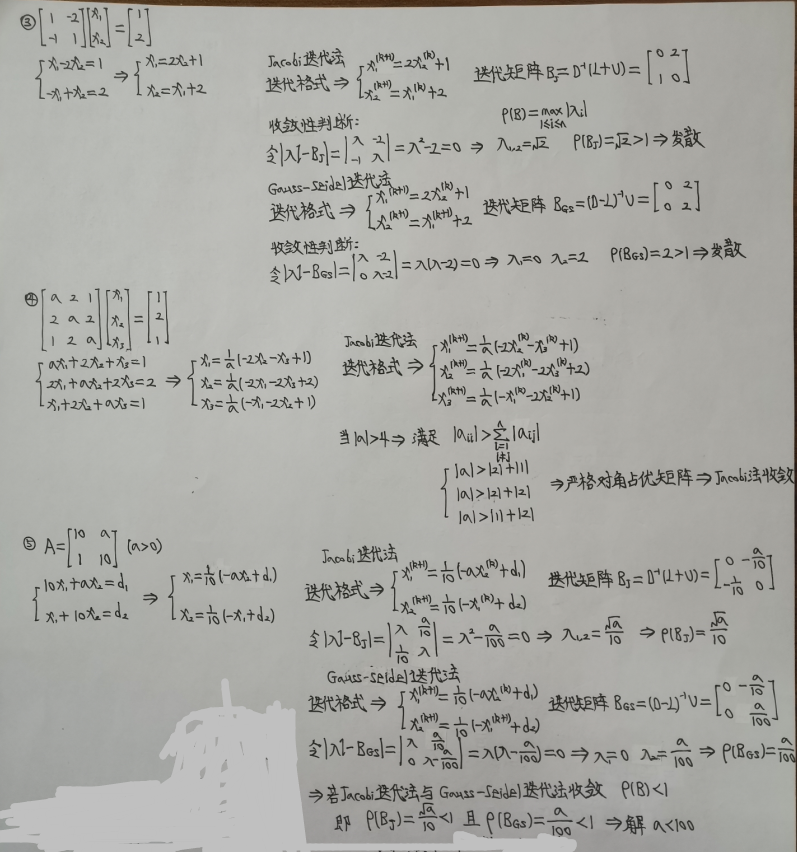 ③ [1 -2; -1 1][x₁; x₂] = [1; 2]
{x₁-2x₂=1; -x₁+x₂=2 ⇒ {x₁=2x₂+1; x₂=x₁+2
Jacobi迭代法
迭代格式 ⇒ {x₁^(k+1)=2x₂^(k)+1; x₂^(k+1)=x₁^(k)+2 迭代矩阵 B_J=D⁻¹(L+U)=[0 2; 1 0]
收敛性判断: ρ(B)=max_{1≤i≤n}|λi|
令|λI-B_J|=|λ -2; -1 λ|=λ²-2=0 ⇒ λ₁,₂=√2 ρ(B_J)=√2>1 ⇒ 发散
Gauss-Seidel迭代法
迭代格式 ⇒ {x₁^(k+1)=2x₂^(k)+1; x₂^(k+1)=x₁^(k+1)+2 迭代矩阵 B_GS=(D-L)⁻¹U=[0 2; 0 2]
收敛性判断:
令|λI-B_GS|=|λ -2; 0 λ-2|=λ(λ-2)=0 ⇒ λ₁=0 λ₂=2 ρ(B_GS)=2>1 ⇒ 发散
④ [a 2 1; 2 a 2; 1 2 a][x₁; x₂; x₃]=[1; 2; 1]
{ax₁+2x₂+x₃=1; 2x₁+ax₂+2x₃=2; x₁+2x₂+ax₃=1 ⇒ {x₁=1/a(-2x₂-x₃+1); x₂=1/a(-2x₁-2x₃+2); x₃=1/a(-x₁-2x₂+1)
Jacobi迭代法
迭代格式 ⇒ {x₁^(k+1)=1/a(-2x₂^(k)-x₃^(k)+1); x₂^(k+1)=1/a(-2x₁^(k)-2x₃^(k)+2); x₃^(k+1)=1/a(-x₁^(k)-2x₂^(k)+1)
当|a|>4 ⇒ 满足 |aii|>Σ|aij|
{|a|>|2|+|1|; |a|>|2|+|2|; |a|>|1|+|2| ⇒ 严格对角占优矩阵 ⇒ Jacobi法收敛
⑤ A=[10 a; 1 10] (a>0)
{10x₁+ax₂=d₁; x₁+10x₂=d₂ ⇒ {x₁=1/10(-ax₂+d₁); x₂=1/10(-x₁+d₂)
Jacobi迭代法
迭代格式 ⇒ {x₁^(k+1)=1/10(-ax₂^(k)+d₁); x₂^(k+1)=1/10(-x₁^(k)+d₂) 迭代矩阵 B_J=D⁻¹(L+U)=[0 -a/10; -1/10 0]
令|λI-B_J|=|λ a/10; 1/10 λ|=λ²-a/100=0 ⇒ λ₁,₂=√a/10 ⇒ ρ(B_J)=√a/10
Gauss-Seidel迭代法
迭代格式 ⇒ {x₁^(k+1)=1/10(-ax₂^(k)+d₁); x₂^(k+1)=1/10(-x₁^(k+1)+d₂) 迭代矩阵 B_GS=(D-L)⁻¹U=[0 -a/10; 0 a/100]
令|λI-B_GS|=|λ a/10; 0 λ-a/100|=λ(λ-a/100)=0 ⇒ λ₁=0 λ₂=a/100 ⇒ ρ(B_GS)=a/100
⇒ 若Jacobi迭代法与Gauss-Seidel迭代法收敛 ρ(B)<1
即 ρ(B_J)=√a/10<1 且 ρ(B_GS)=a/100<1 ⇒ 解 a<100